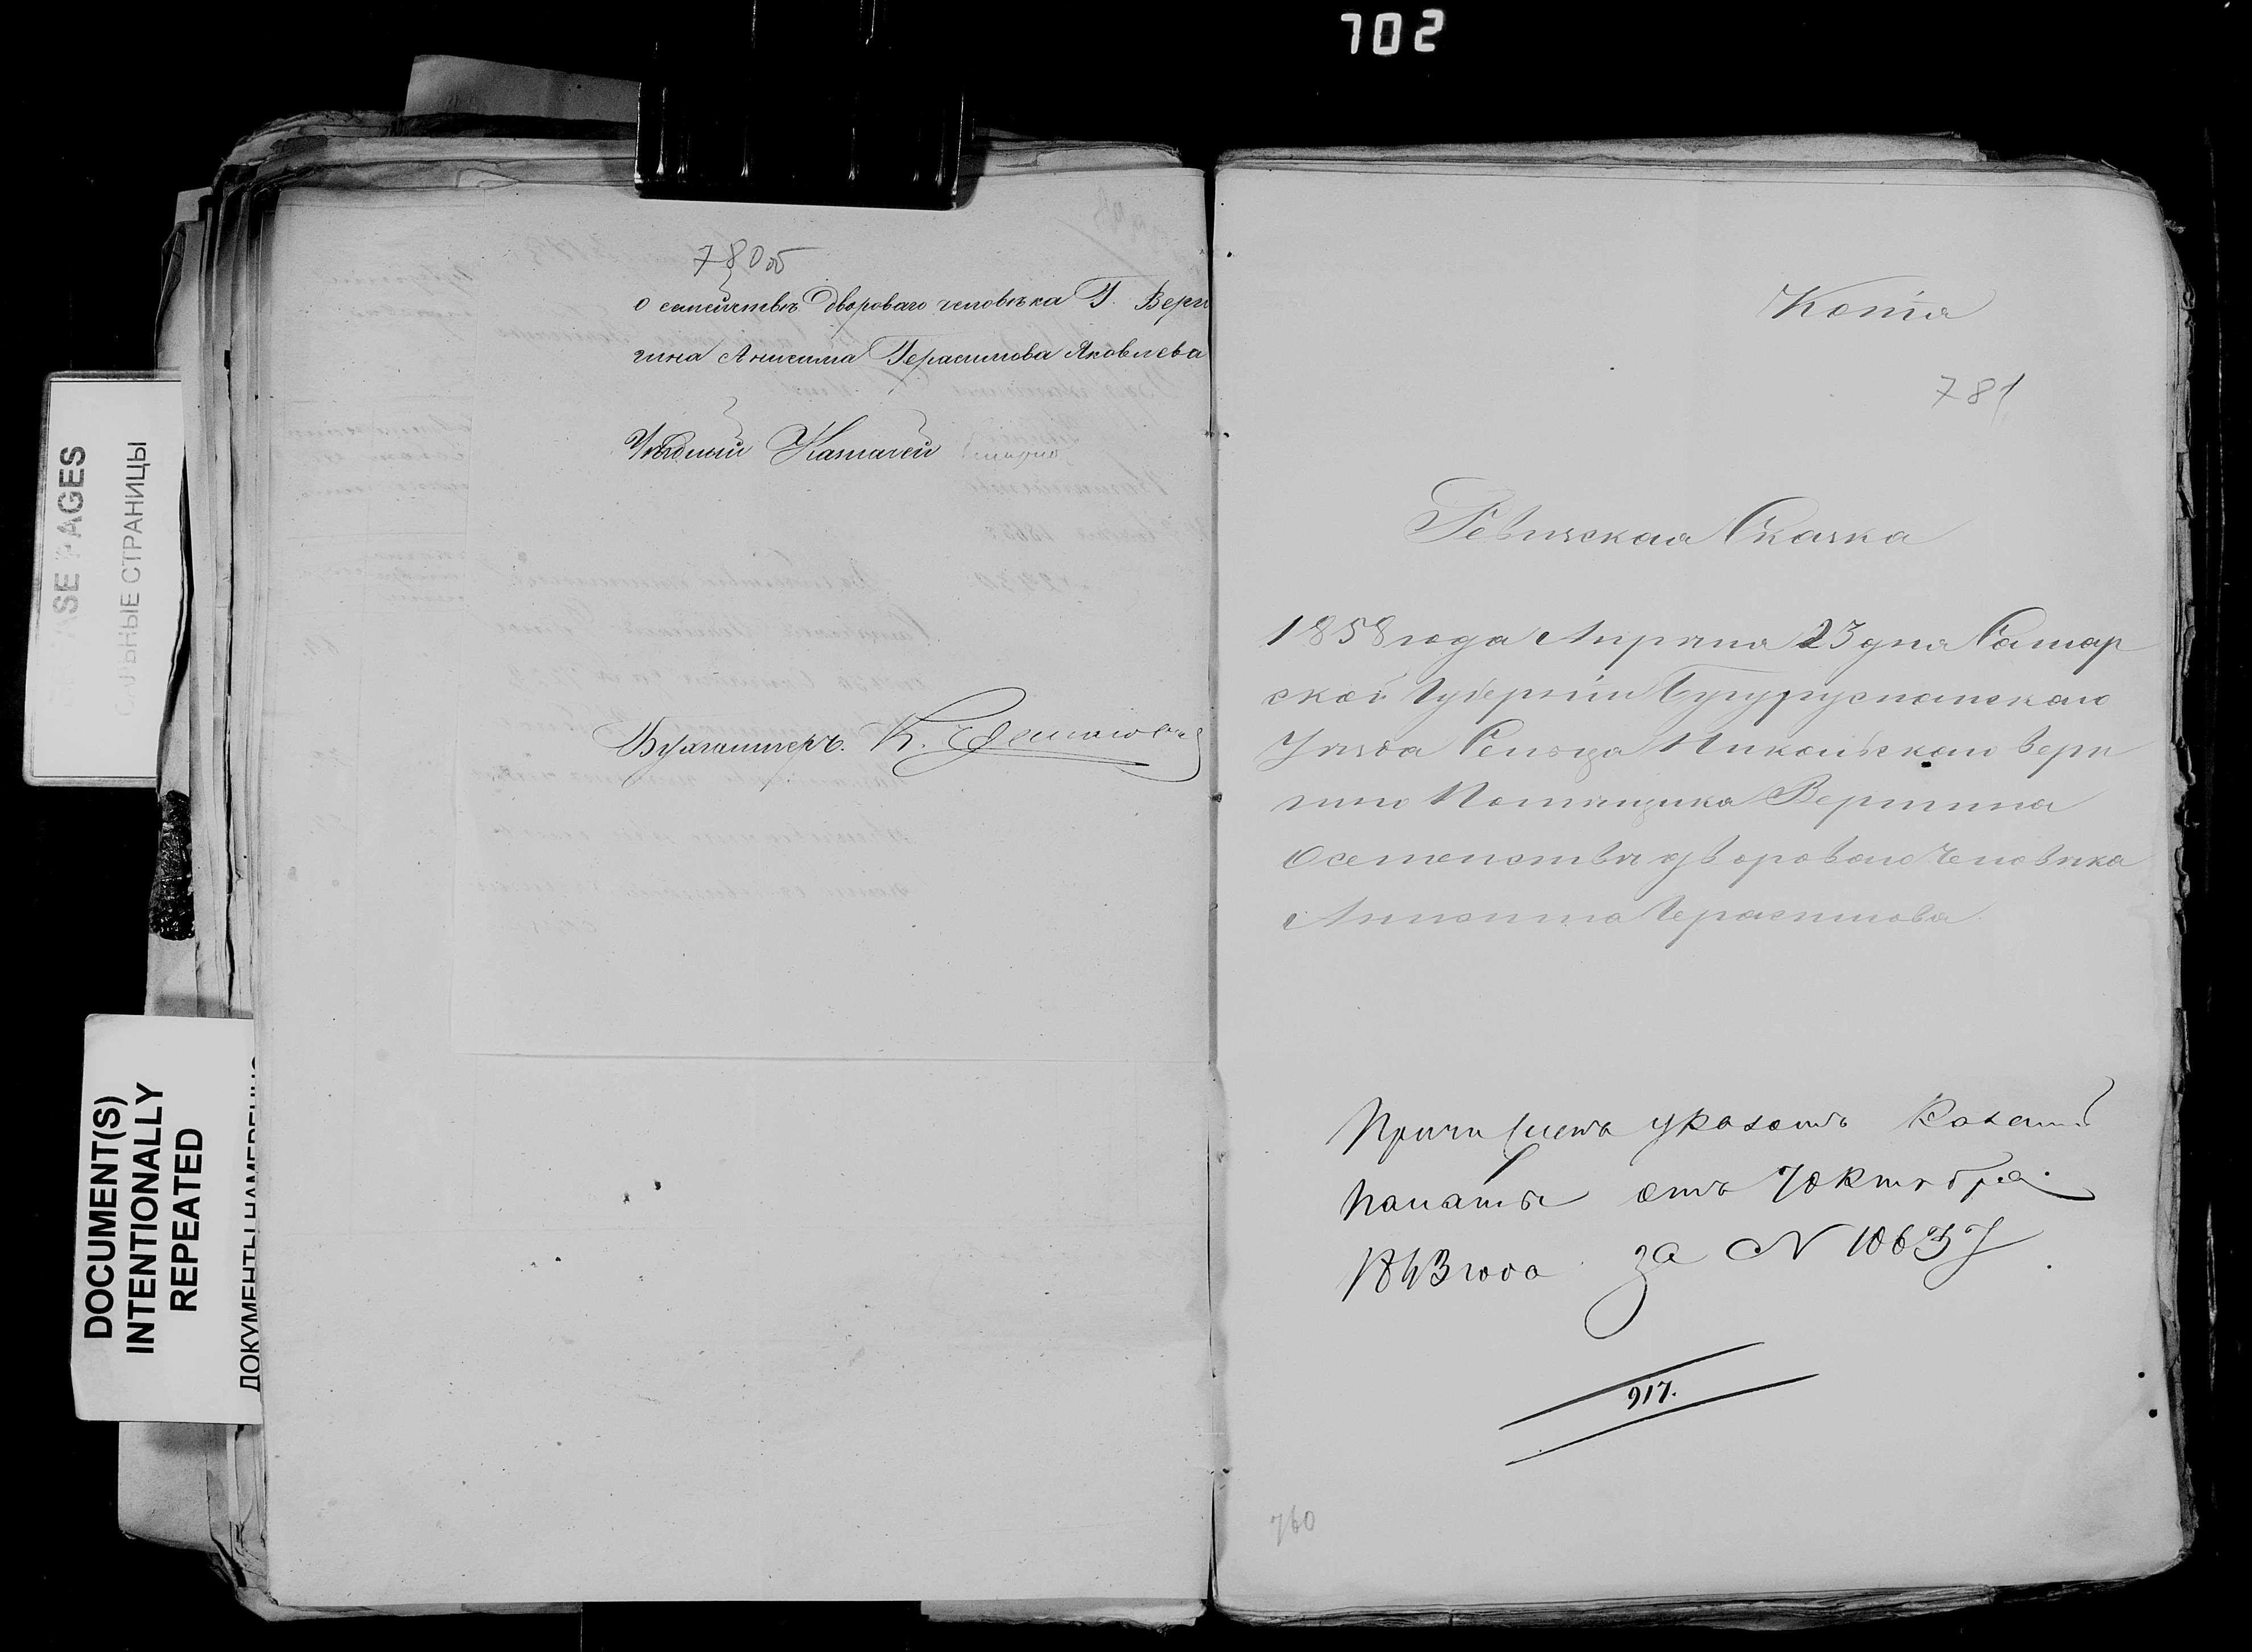 702
780об
о семействѣ двороваго человѣка Г. Вери
гина Анисима Герасимова Яковлева
Уѣздный Казначей
Бухгалтеръ. К.
ASE PAGES
ЬНЫЕ СТРАНИЦЫ
DOCUMENT(S)
INTENTIONALLY
REPEATED
ДОКУМЕНТЫ НАМЕРЕННО
Копія
781
Ревизская Сказка
1858 года Апрѣля 23 дня Самар
ской Губерніи Бугурусланскаго
Уѣзда Сельца Никольскаго Вери
гино Помѣщика Веригина
О семействѣ двороваго человѣка
Анисима Герасимова
Причисленъ указомъ Казенной
Палаты отъ 7 Октября
1863 года за N 10637
917.
760